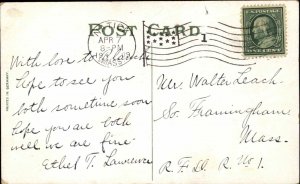 POST CARD
APR 7
8-PM
MASS.
1
U.S. POSTAGE
ONE CENT
With love to
Hope to see you
both sometime soon
Hope you are both
well we are fine
Ethel T. Lawrence
Mr. Walter Leach
So. Framingham
Mass.
R.F.D. R. No 1.
PRINTED IN GERMANY